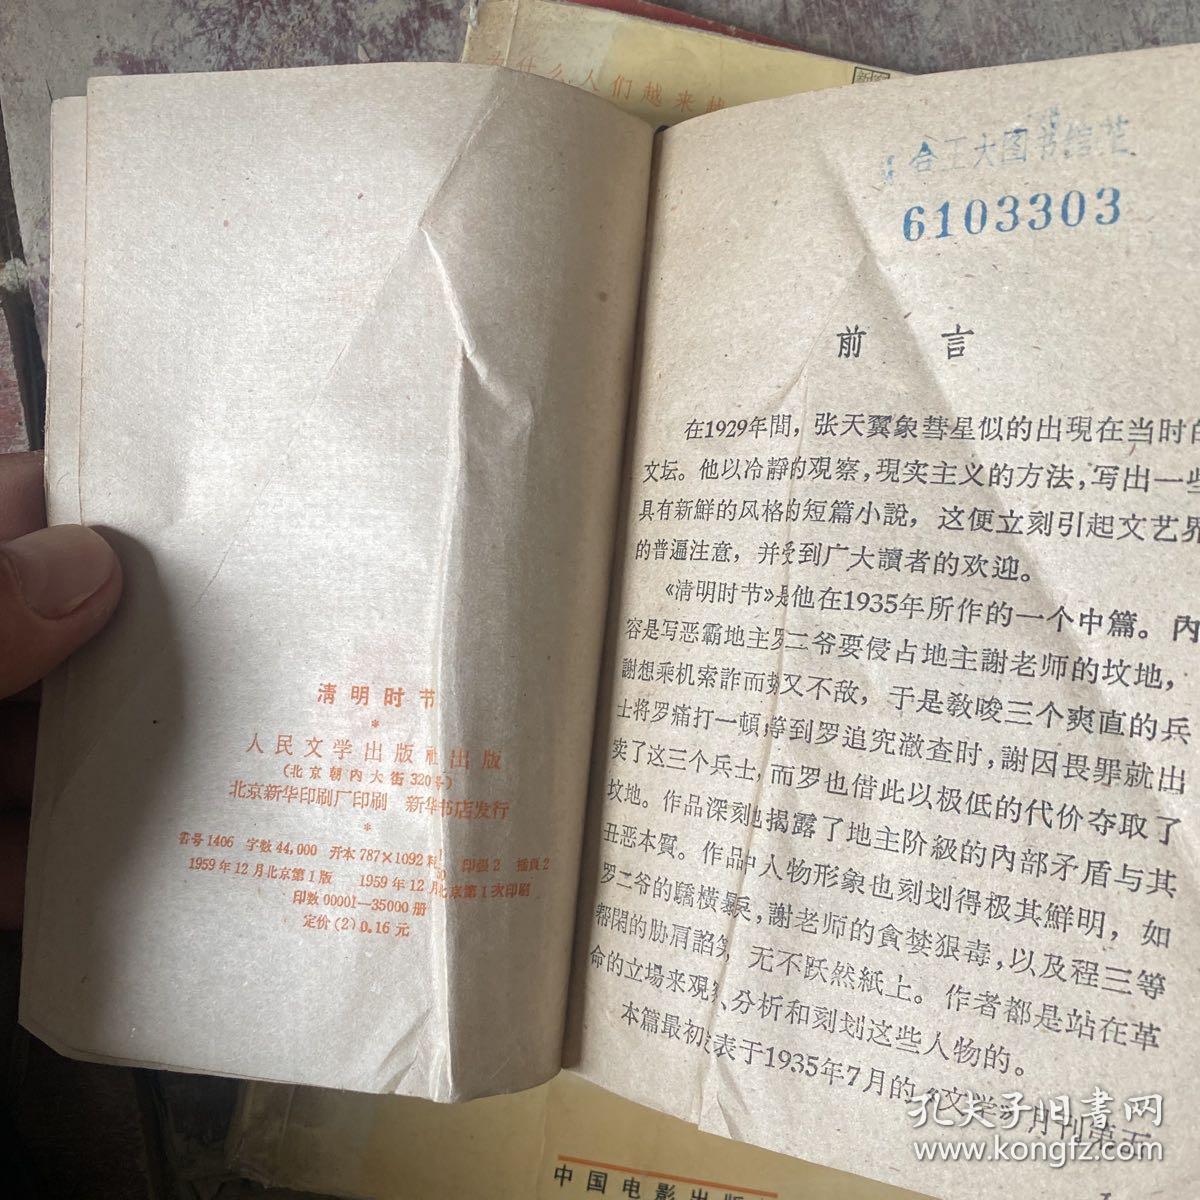 为什么人们越来越
清明时节
*
人民文学出版社出版
(北京朝内大街320号)
北京新华印刷厂印刷 新华书店发行
*
書号1406 字数44,000 开本787×1092 印張2 插頁2
1959年12月北京第1版 1959年12月北京第1次印刷
印数00001—35000册
定价(2)0.16元
合工大图书馆芷
6103303
前言
在1929年間,张天翼象彗星似的出現在当时的
文坛。他以冷靜的观察,現实主义的方法,写出一些
具有新鮮的风格的短篇小說,这便立刻引起文艺界
的普遍注意,并受到广大讀者的欢迎。
《清明时节》是他在1935年所作的一个中篇。內
容是写恶霸地主罗二爷要侵占地主謝老师的坟地,
謝想乘机索詐而势又不敌,于是教唆三个爽直的兵
士将罗痛打一頓,等到罗追究澈查时,謝因畏罪就出
卖了这三个兵士,而罗也借此以极低的代价夺取了
坟地。作品深刻地揭露了地主阶級的內部矛盾与其
丑恶本質。作品中人物形象也刻划得极其鮮明,如
罗二爷的驕橫暴戾,謝老师的貪婪狠毒,以及程三等
帮閑的胁肩諂笑,无不跃然紙上。作者都是站在革
命的立場来观察、分析和刻划这些人物的。
本篇最初发表于1935年7月的《文学》月刊第五
中国电影出版
孔夫子旧书网
www.kongfz.com